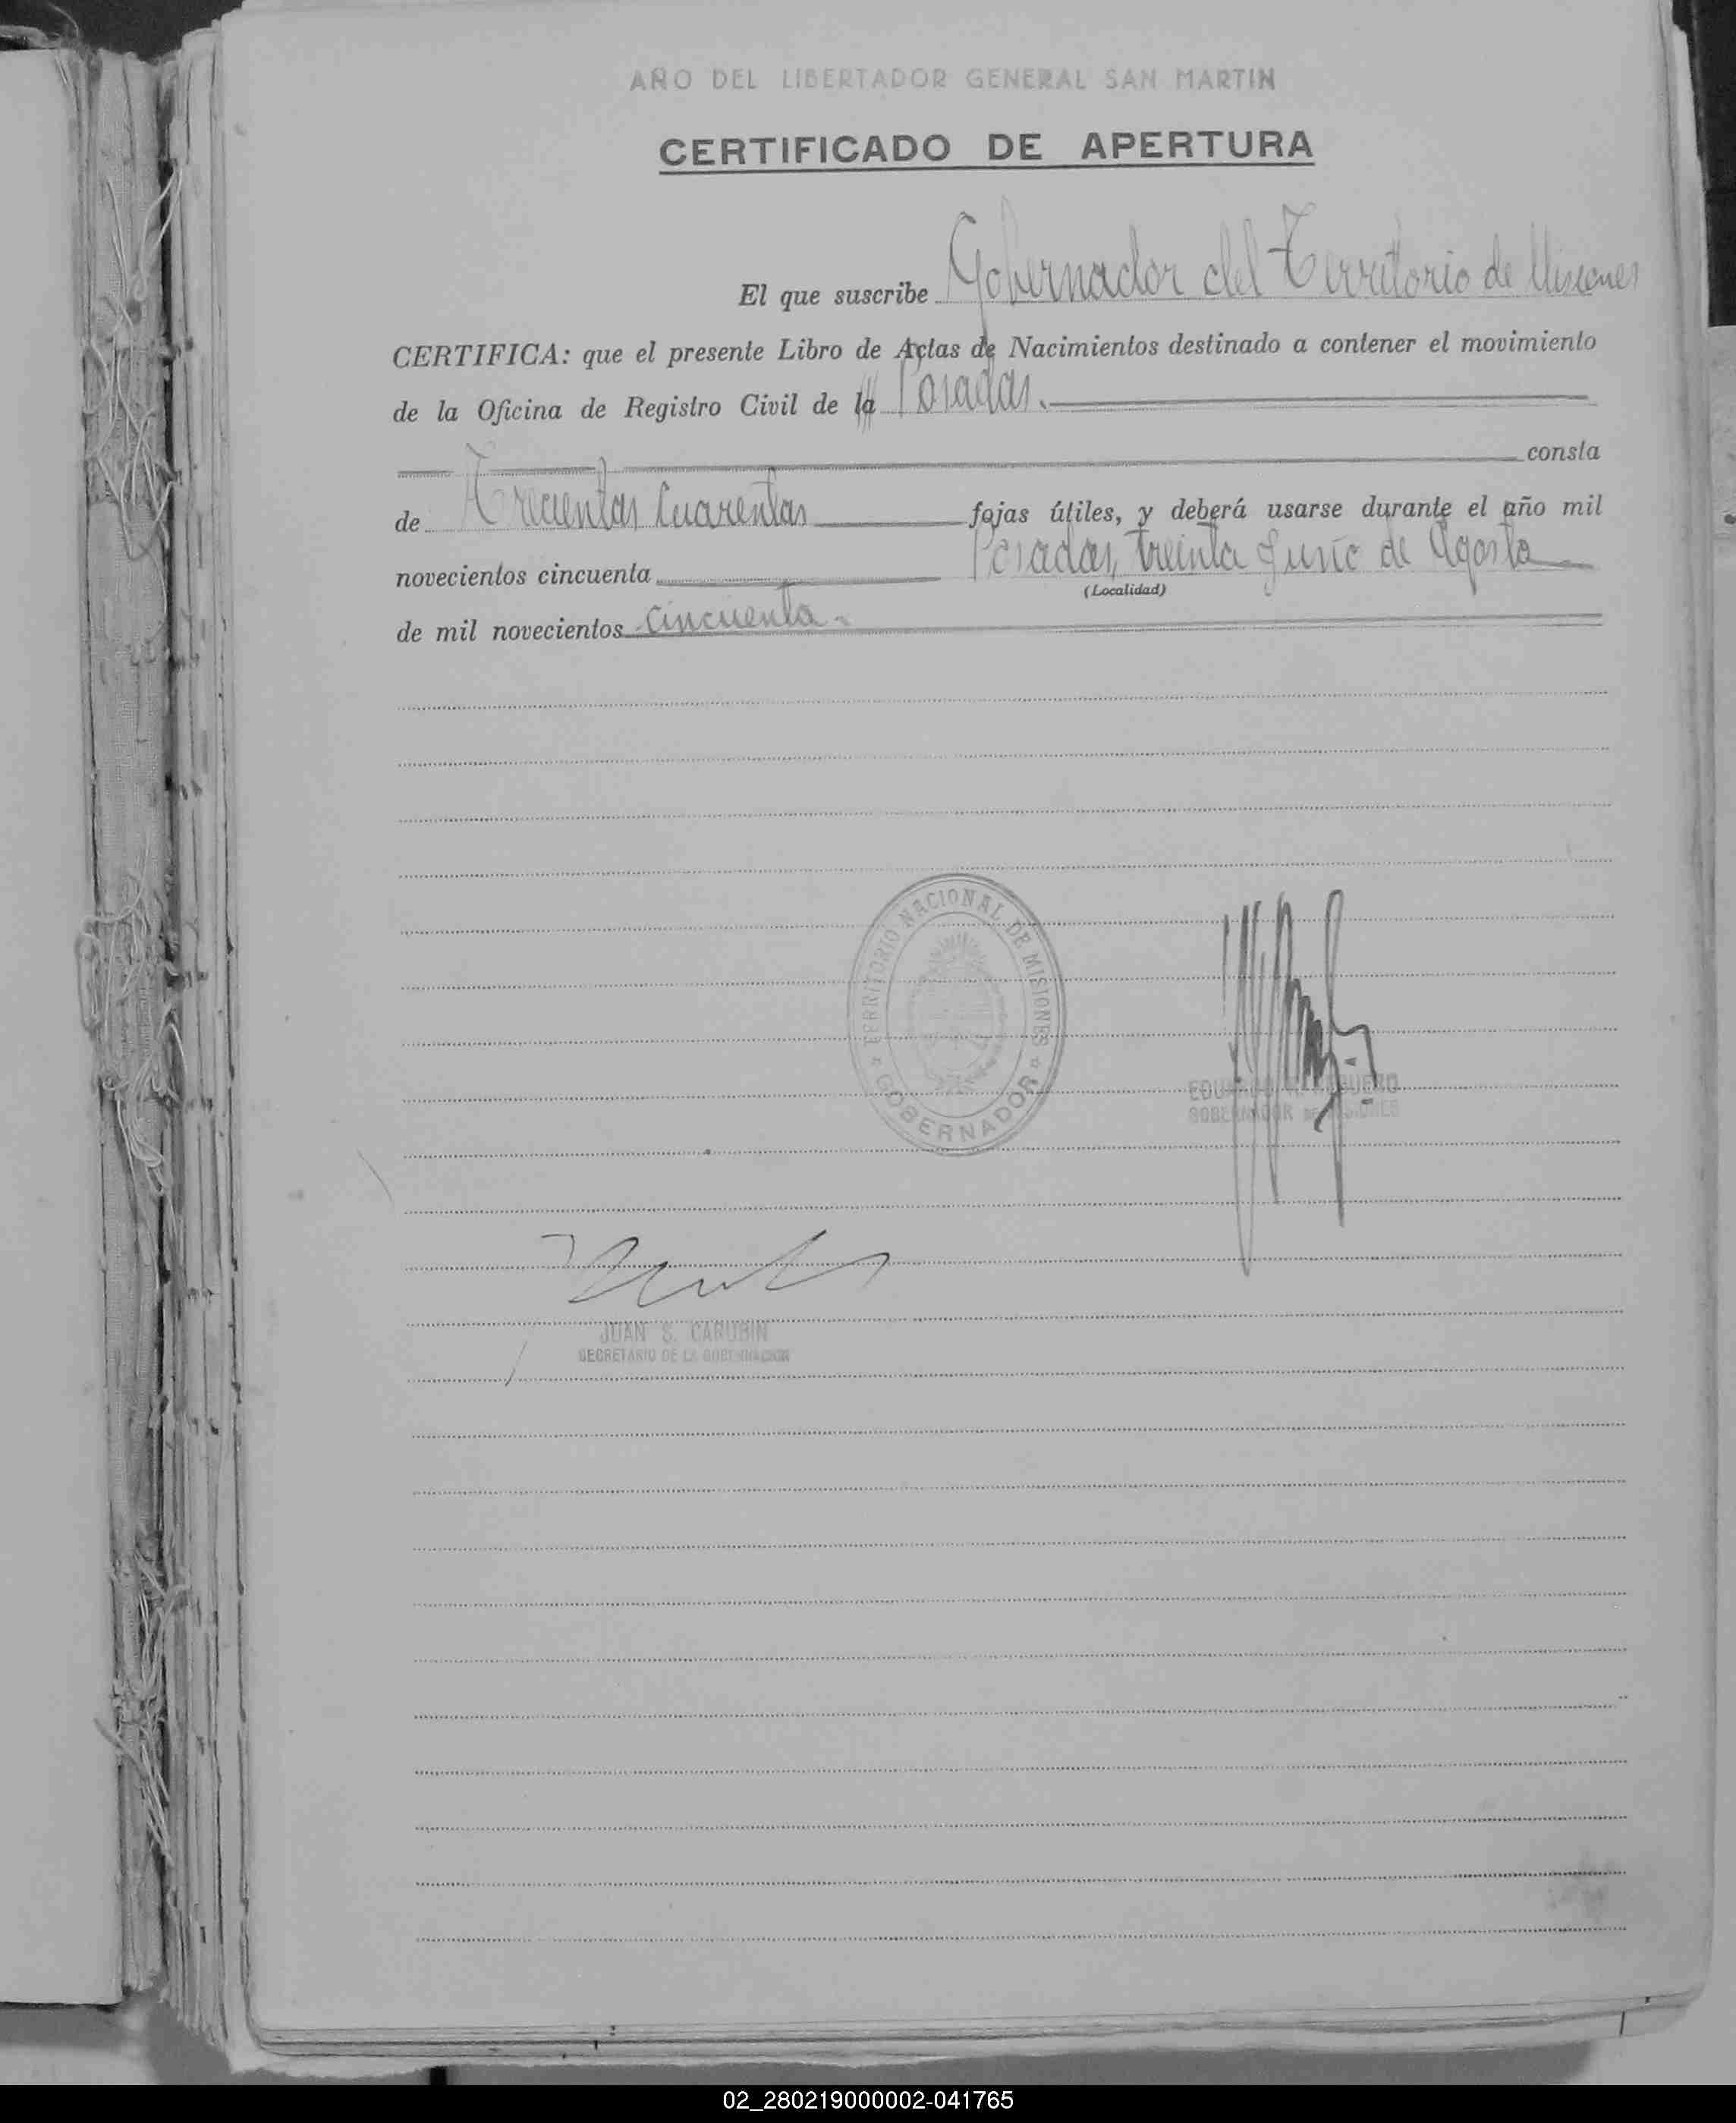 AÑO DEL LIBERTADOR GENERAL SAN MARTIN
CERTIFICADO DE APERTURA
El que suscribe Gobernador del Territorio de Misiones
CERTIFICA: que el presente Libro de Actas de Nacimientos destinado a contener el movimiento
de la Oficina de Registro Civil de la Posadas.
consta
de Trecientas Cuarentas fojas útiles, y deberá usarse durante el año mil
novecientos cincuenta Posadas, treinta y uno de Agosto
(Localidad)
de mil novecientos cincuenta.
TERRITORIO NACIONAL DE MISIONES
GOBERNADOR
GOBERNADOR DE MISIONES
JUAN S. CARUBIN
SECRETARIO DE LA GOBERNACION
02_280219000002-041765